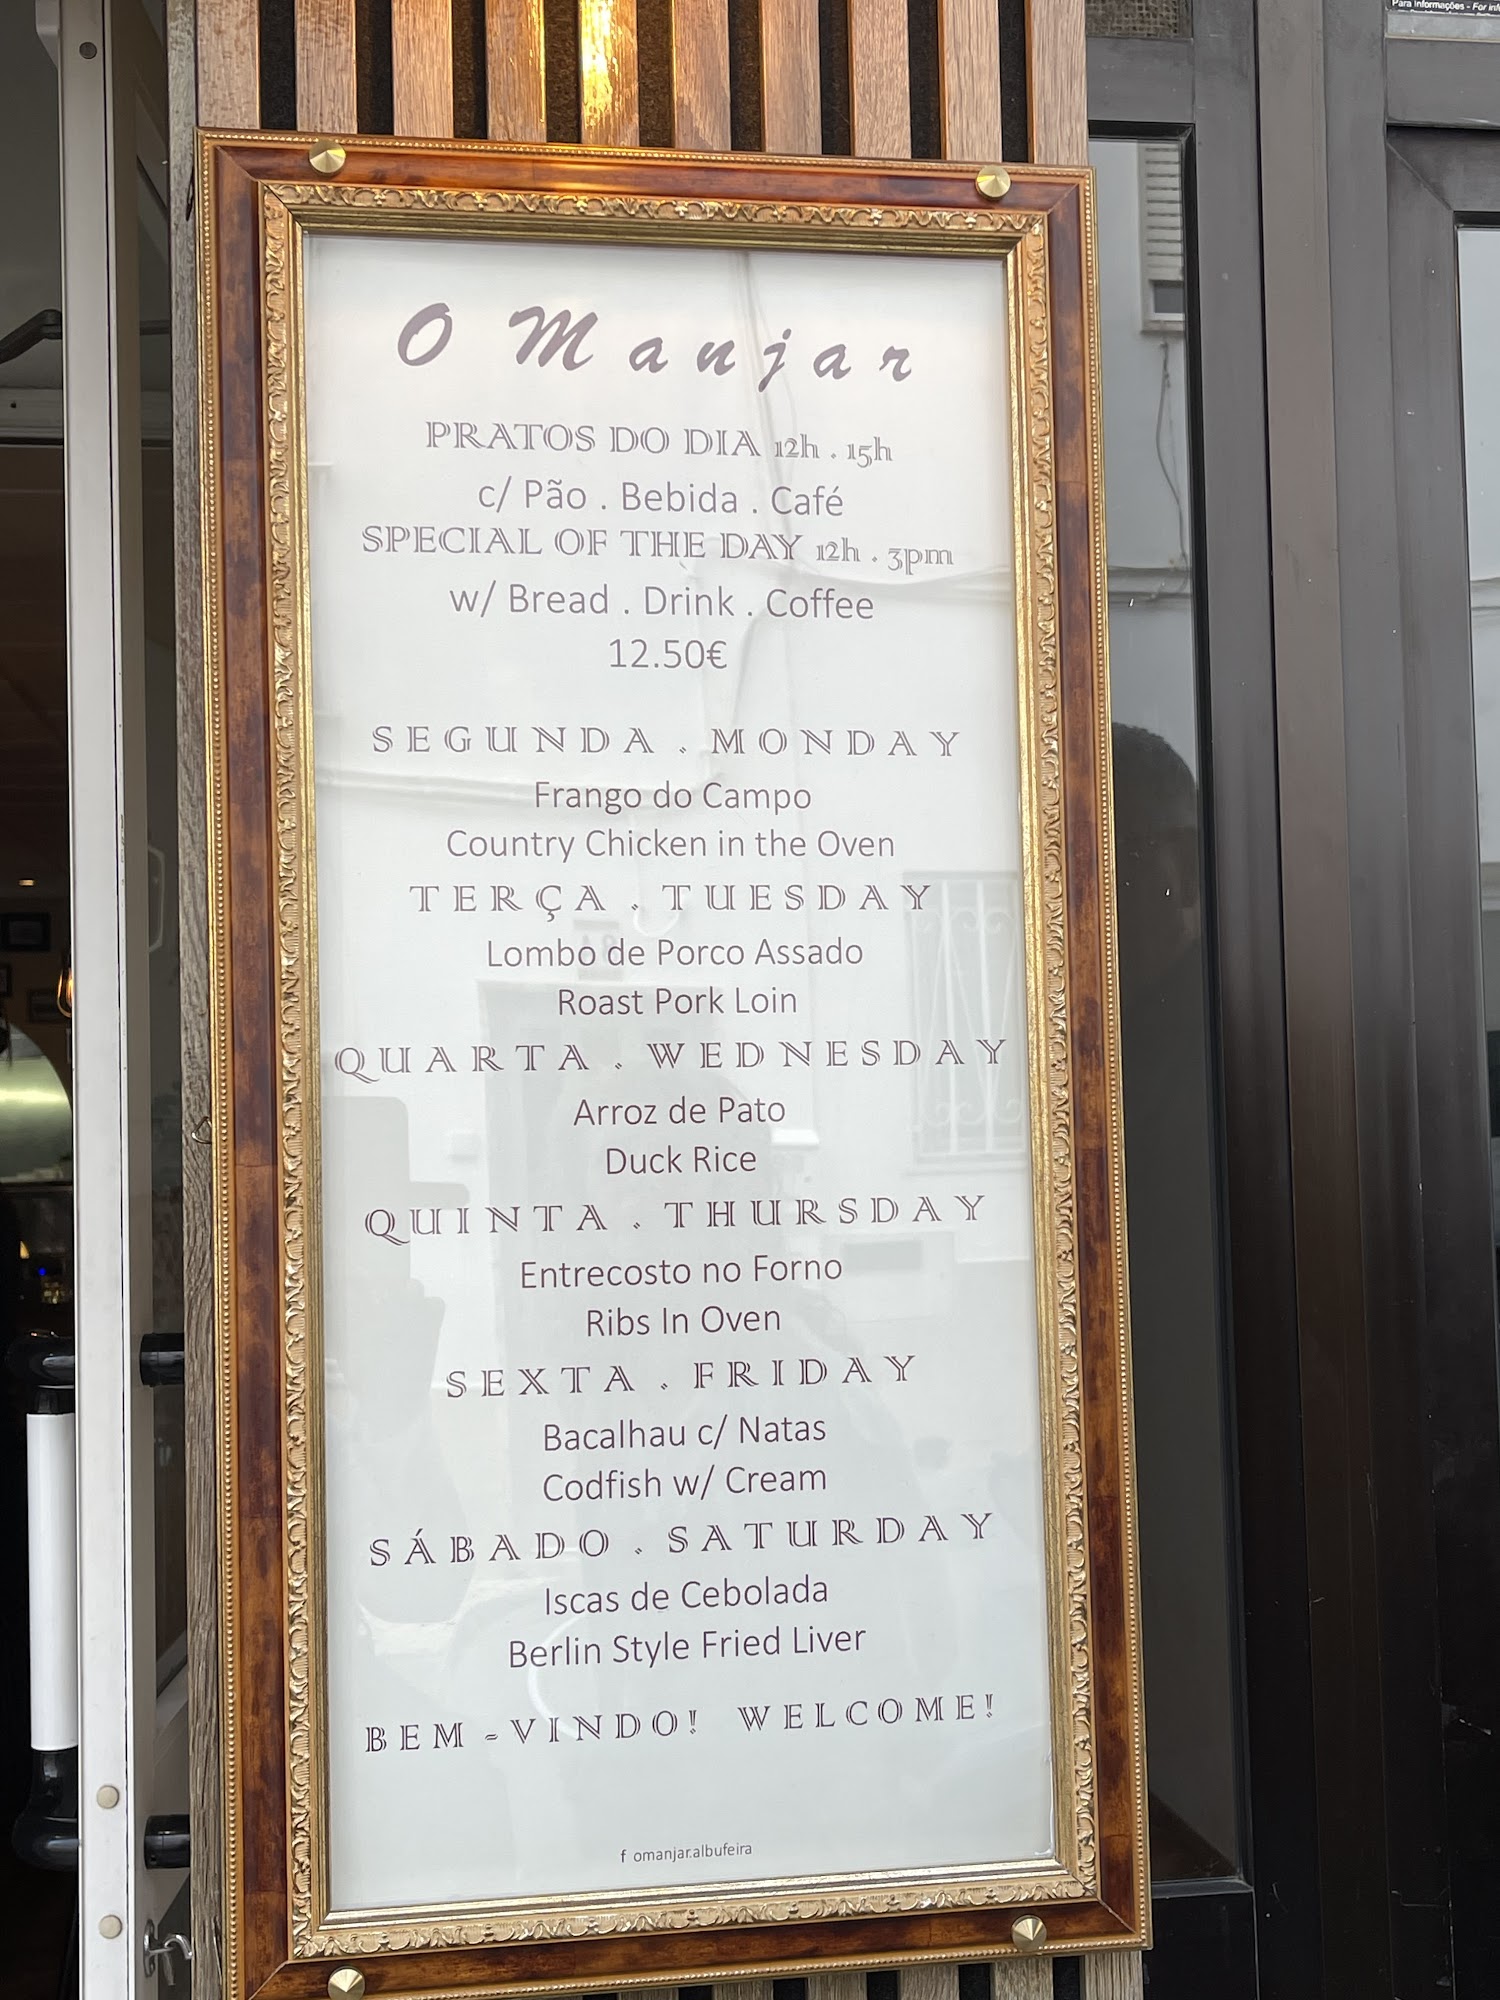 Para Informações - For
O Manjar
PRATOS DO DIA 12h . 15h
c/ Pão . Bebida . Café
SPECIAL OF THE DAY 12h . 3pm
w/ Bread . Drink . Coffee
12.50€
SEGUNDA . MONDAY
Frango do Campo
Country Chicken in the Oven
TERÇA . TUESDAY
Lombo de Porco Assado
Roast Pork Loin
QUARTA . WEDNESDAY
Arroz de Pato
Duck Rice
QUINTA . THURSDAY
Entrecosto no Forno
Ribs In Oven
SEXTA . FRIDAY
Bacalhau c/ Natas
Codfish w/ Cream
SÁBADO . SATURDAY
Iscas de Cebolada
Berlin Style Fried Liver
BEM-VINDO! WELCOME!
f omanjar.albufeira